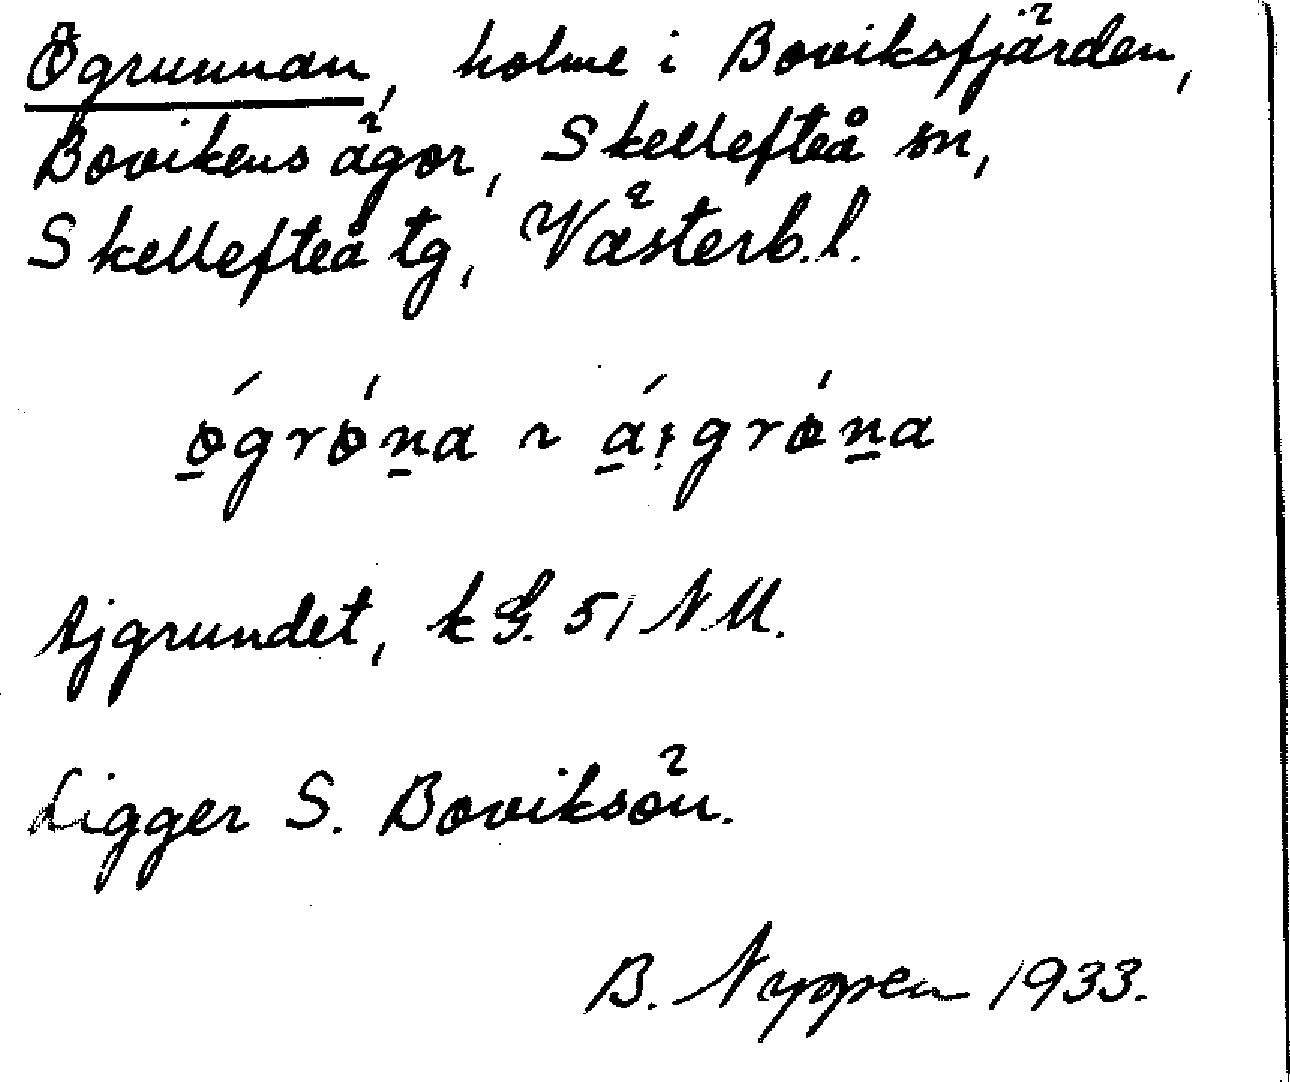 Ögrunnan, holme i Boviksfjärden,
Bovikens ägor, Skellefteå sn,
Skellefteå tg, Västerb.l.
Ajgrundet, k G. 51 NU.
Ligger S. Boviksön.
B. Nygren 1933.